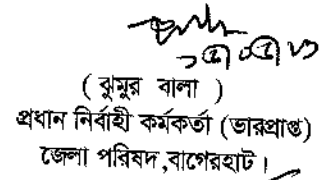 ( ঝুমুর বালা )
প্রধান নির্বাহী কর্মকর্তা (ভারপ্রাপ্ত)
জেলা পরিষদ,বাগেরহাট।